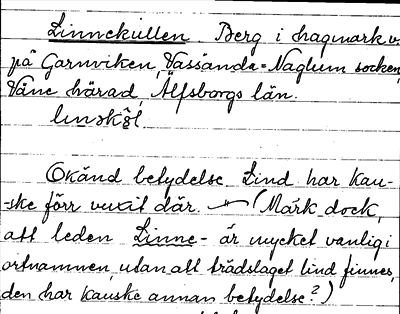 Linnekullen. Berg i hagmark v.
på Garnviken, Vassända-Naglum socken,
Väne härad, Älfsborgs län.
Okänd betydelse. Lind har kan-
-ske förr vuxit där. (Märk dock,
att leden Linne- är mycket vanlig i
ortnamnen, utan att trädslaget lind finnes,
den har kanske annan betydelse?)